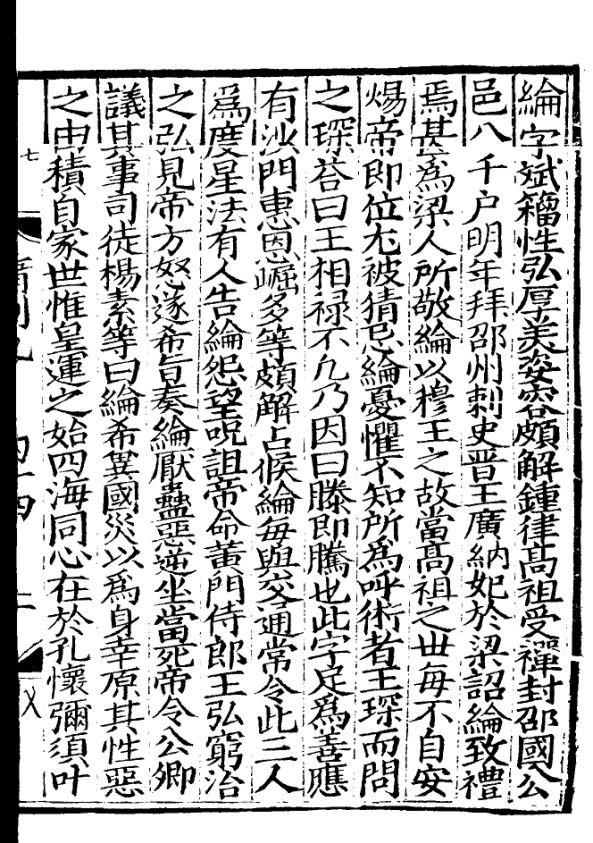 綸字斌籀性弘厚美姿容頗解鍾律高祖受禪封邵國公
邑八千户明年拜邵州刺史晋王廣納妃於梁詔綸致禮
焉甚爲梁人所敬綸以穆王之故當高祖之世每不自安
煬帝即位尤被猜忌綸憂懼不知所爲呼術者王琛而問
之琛荅曰王相禄不凡乃因曰滕即騰也此字足爲善應
有沙門惠恩崛多等頗解占候綸每與交通常令此三人
爲度星法有人告綸怨望呪詛帝命黄門侍郎王弘窮治
之弘見帝方怒遂希旨奏綸厭蠱惡逆坐當死帝令公卿
議其事司徒楊素等曰綸希兾國災以爲身幸原其性惡
之由積自家世惟皇運之始四海同心在於孔懷彌須叶
七